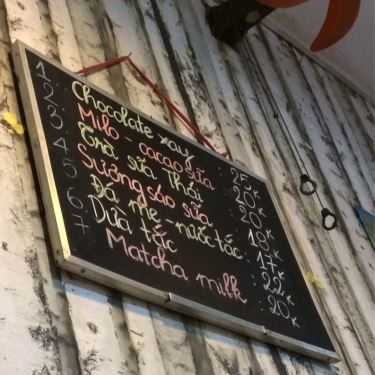 1. Chocolate xay : 25k
2. Milo - cacao sữa : 20k
3. Trà sữa Thái : 20k
4. Sương sáo sữa : 18k
5. Đá me - nước tắc : 17k
6. Dừa tắc : 22k
7. Matcha milk : 20k